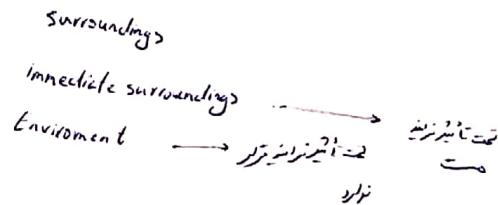 surroundings
immediate surroundings → تحت تأثیر فرایند
هست
Enviroment → تحت تأثیر فرایند قرار
ندارد